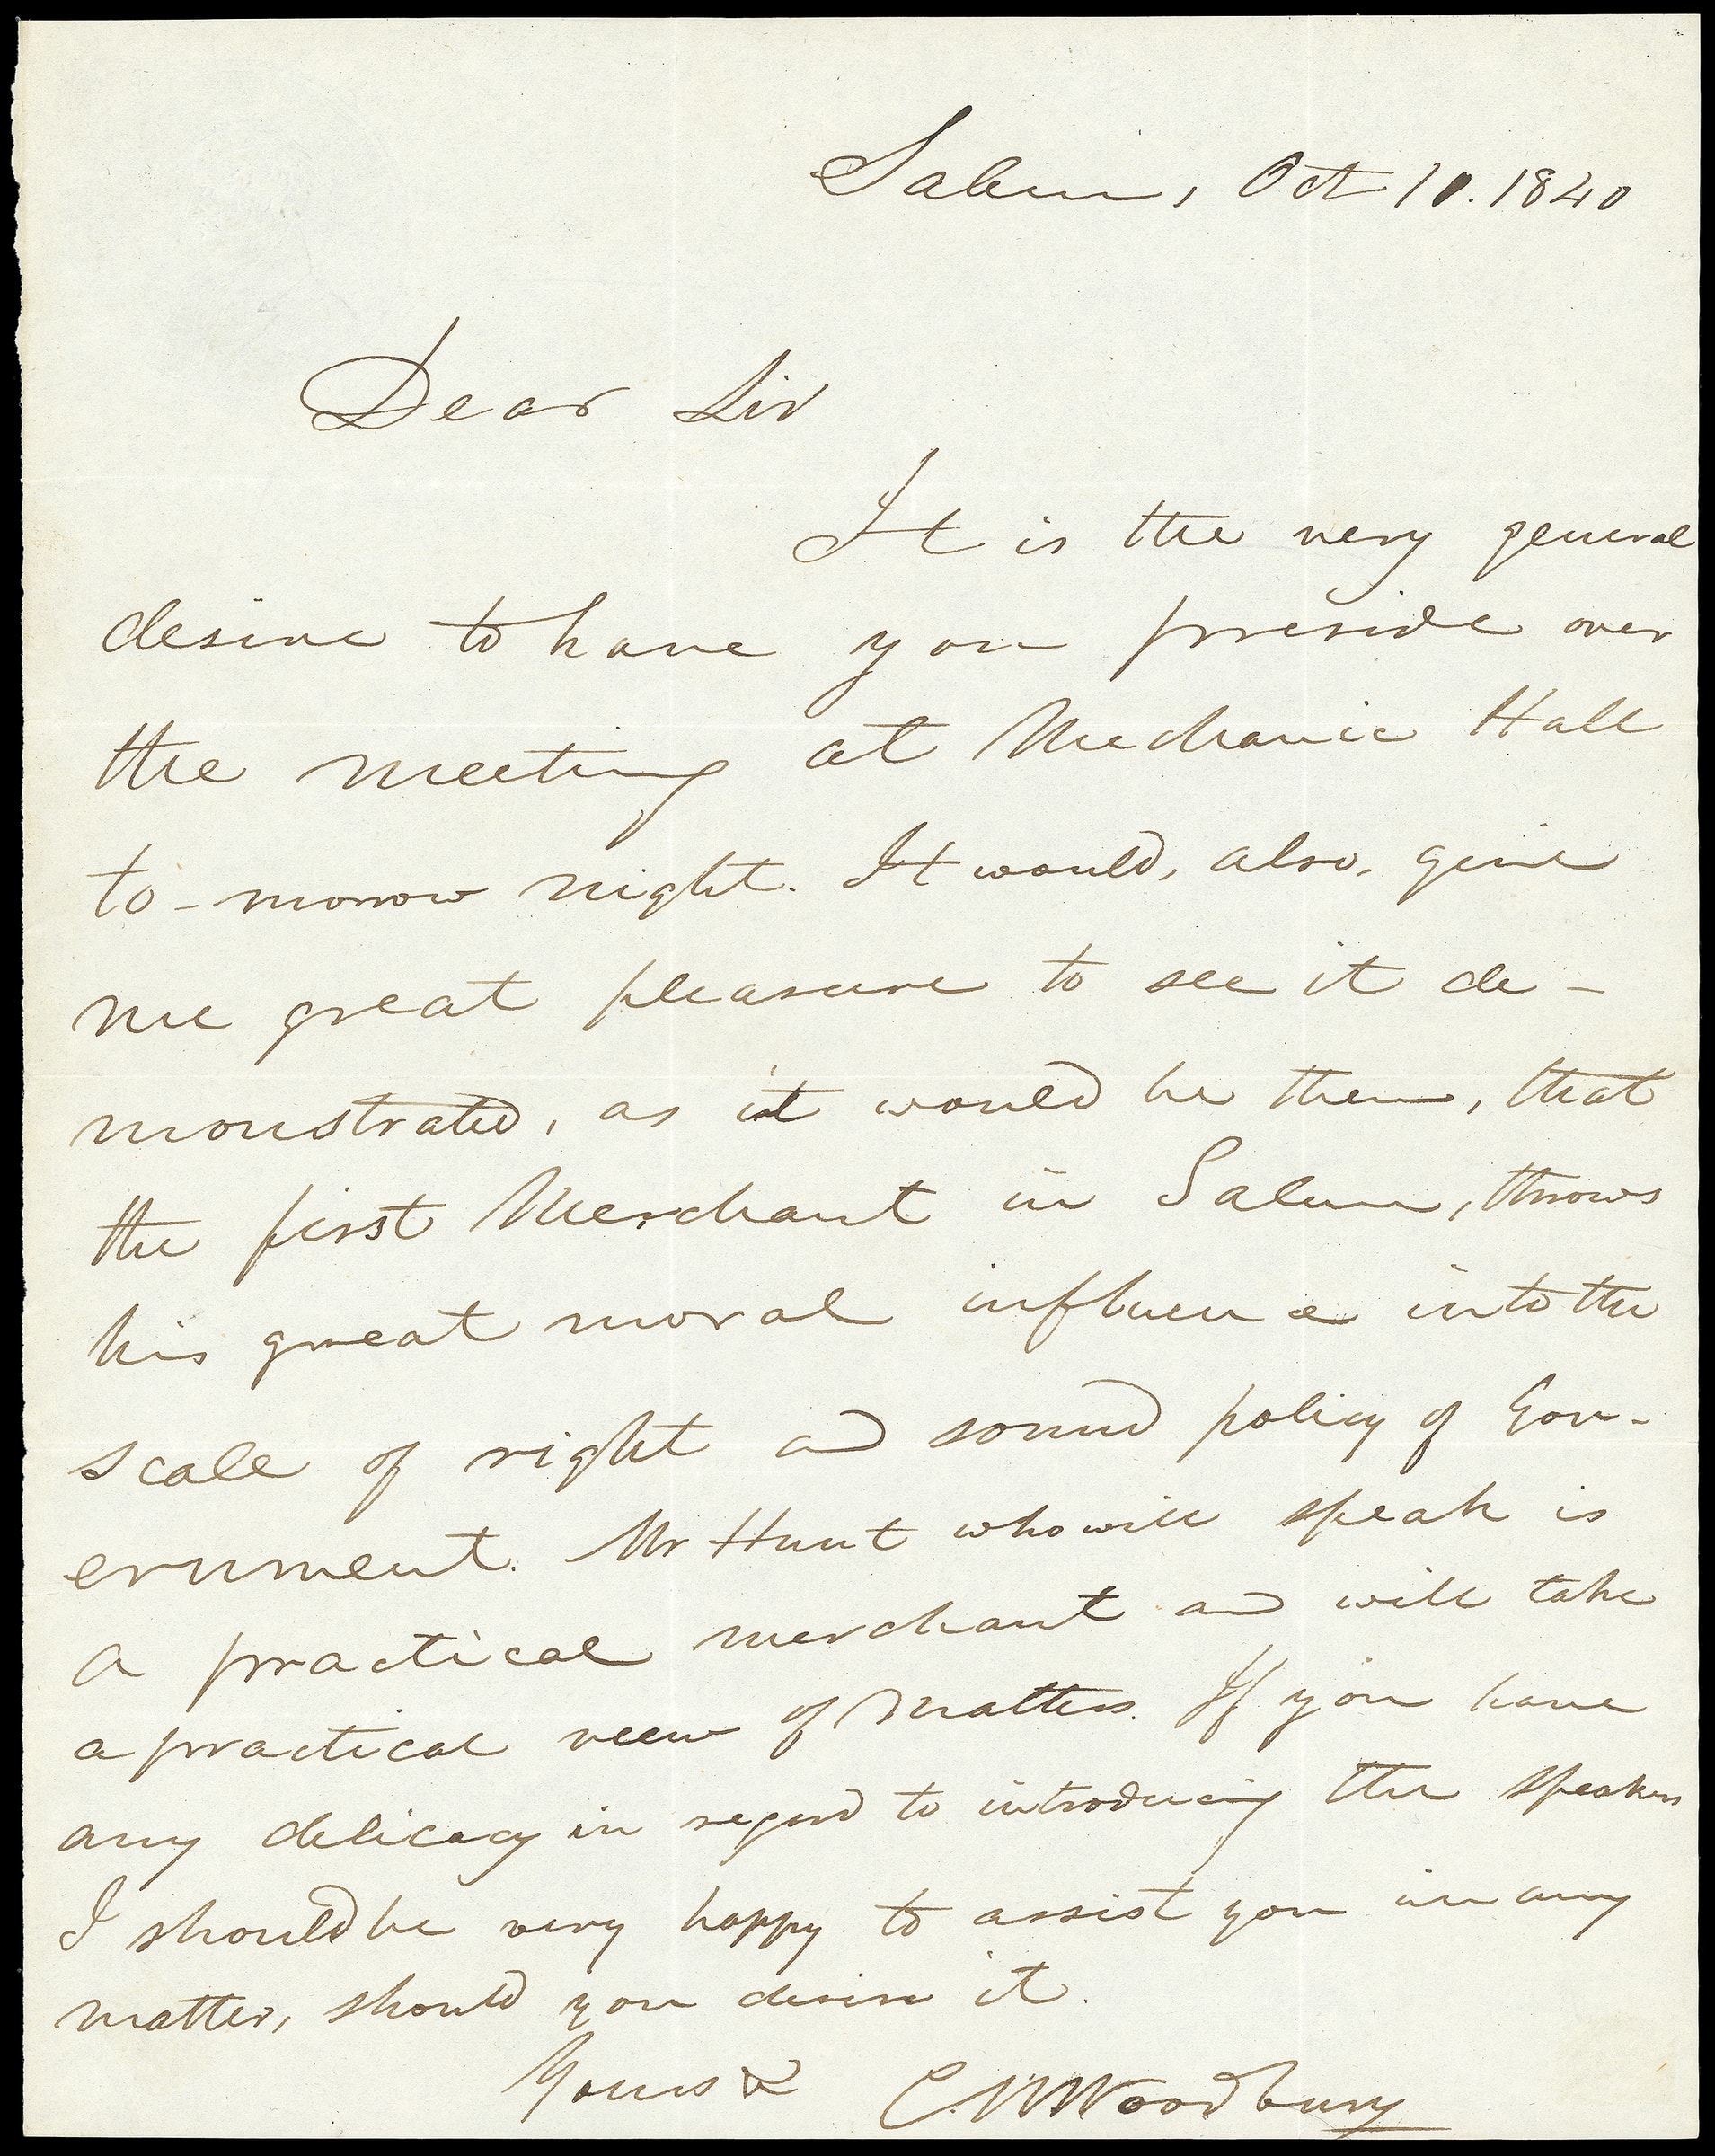 Salem, Oct 10. 1840
Dear Sir
It is the very general
desire to have you preside over
the meeting at Mechanic Hall
to-morrow night. It would, also, give
me great pleasure to see it de-
monstrated, as it would be then, that
the first Merchant in Salem, throws
his great moral influence into the
scale of right and sound policy of Gov-
ernment. Mr Hunt who will speak is
a practical merchant and will take
a practical view of matters. If you have
any delicacy in regard to introducing the speakers
I should be very happy to assist you in any
matter, should you desire it.
Yours & C. W Woodbury